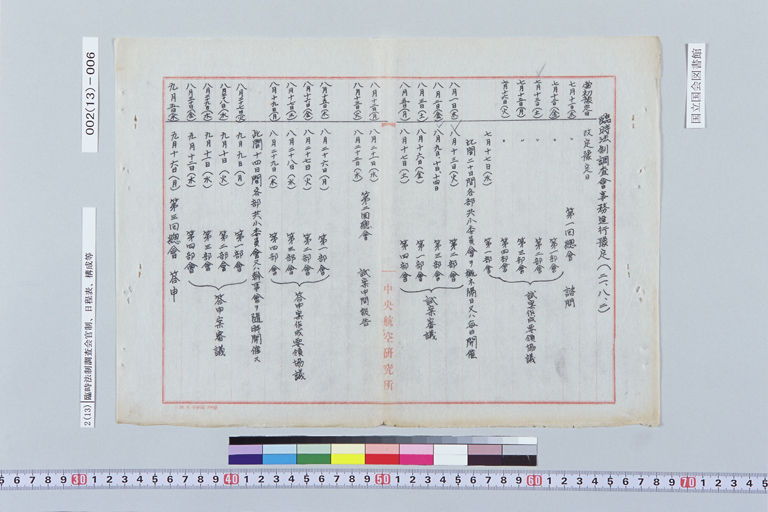 国立国会図書館
002(13)-006
2(13) 臨時法制調査会官制、日程表、構成等
臨時法制調査會事務進行豫定(二一、八、二)
當初豫定日 改定豫定日
七月十一日(木) 第一回總會 諮問
七月十二日(金) 〃 第一部會
七月十三日(土) 〃 第二部會
七月十五日(月) 〃 第三部會
七月十六日(火) 〃 第四部會
七月十七日(水) 第一部會
試案作成要領協議
此間二十日間各部共小委員會ヲ概ネ隔日又ハ每日開催
八月一日(木) 八月十三日(火) 第二部會
八月二日(金) 八月九日、十四日 第三部會
八月三日(土) 八月十六日(金) 第一部會
八月五日(月) 八月十七日(土) 第四部會
試案審議
八月二十一日(水) 第二回總會 試案中間報告
八月二十二日(木)
八月二十六日(月) 第一部會
八月十六日(金) 八月二十七日(火) 第二部會
八月十七日(土) 八月二十八日(水) 第三部會
八月十九日(月) 八月二十九日(木) 第四部會
答申案作成要領協議
此間十四日間各部共小委員會又ハ幹事會ヲ隨時開催ス
九月九日(月) 第一部會
八月二十八日(水) 九月十日(火) 第二部會
八月二十九日(木) 九月十一日(水) 第三部會
八月三十日(金) 九月十二日(木) 第四部會
答申案審議
九月五日(木) 九月十六日(月) 第三回總會 答申
中央航空研究所